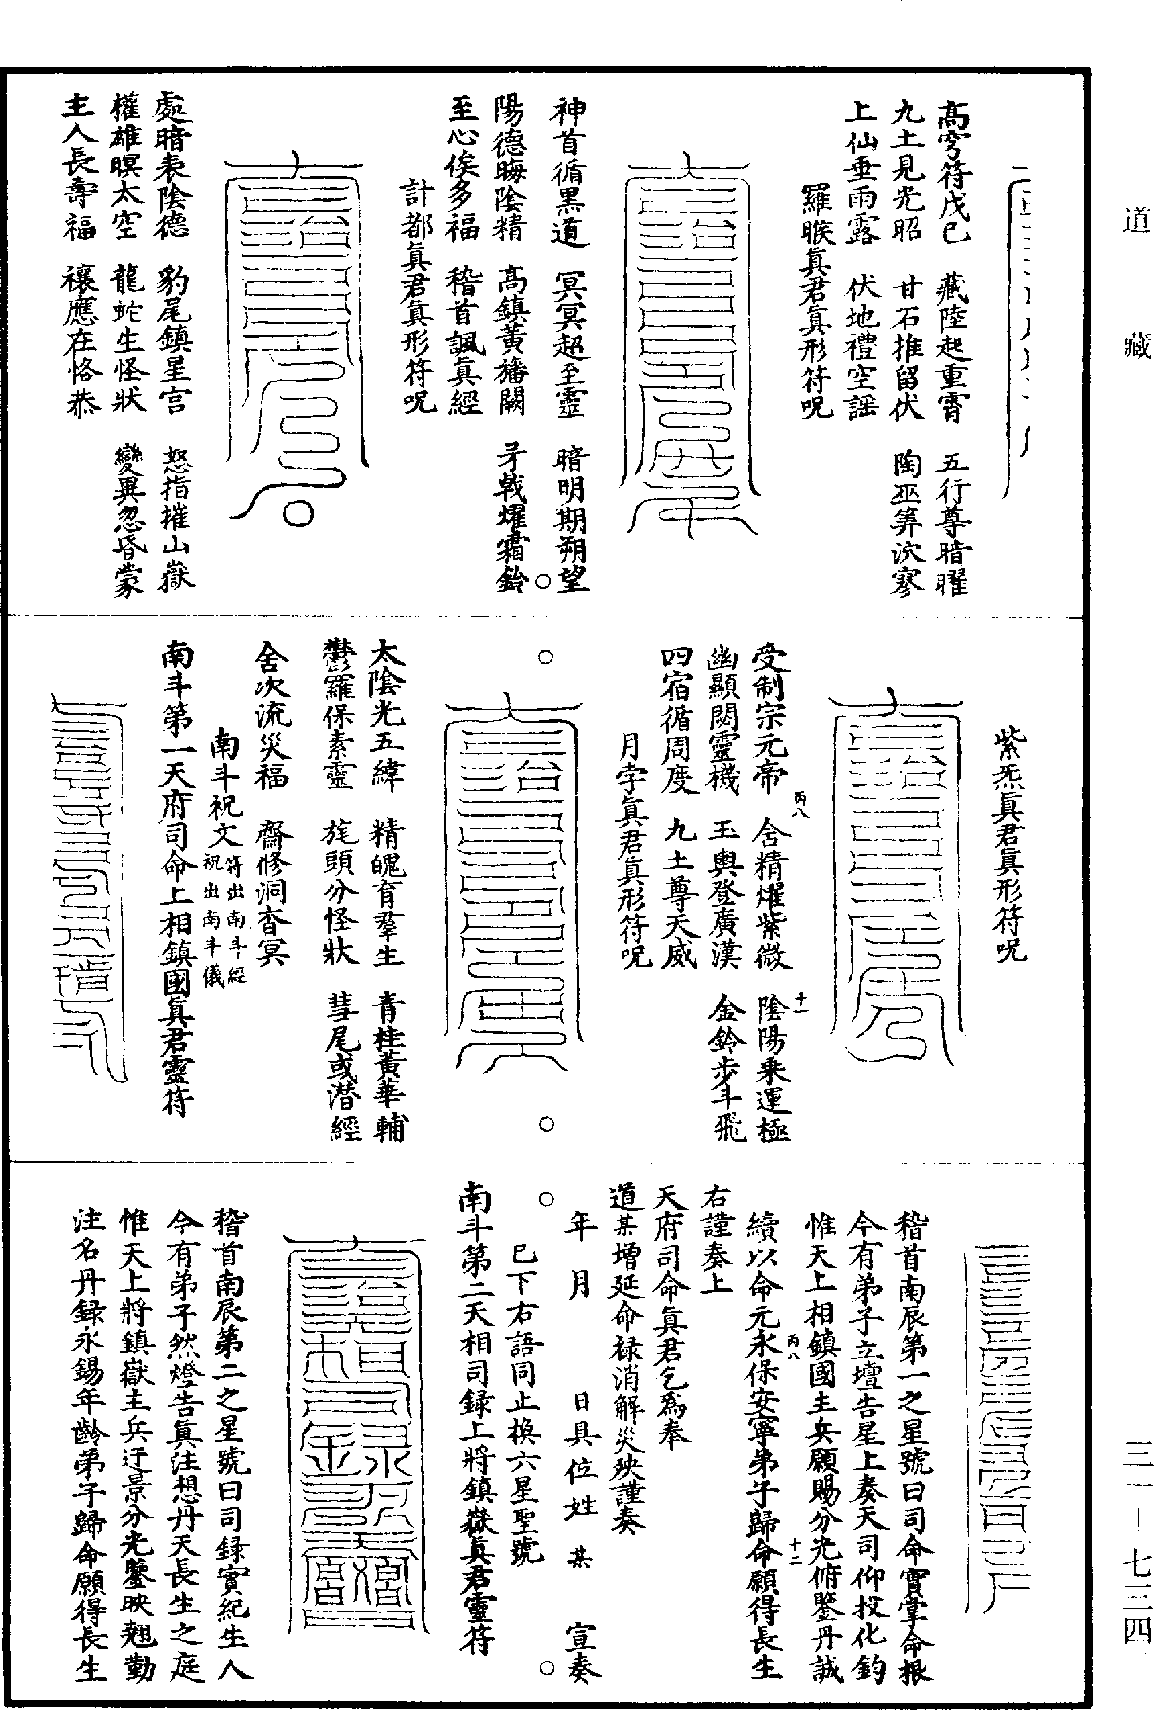 道藏
三一－七三四
高穹符戊己　藏陸起重霄　五行尊暗曜
九土見光昭　甘石推留伏　陶巫筭泬寥
上仙垂雨露　伏地禮空謡
羅睺眞君眞形符呪
神首循黑道　冥冥超至靈　暗明期朔望
陽德晦陰精　高鎮黃旛闕　矛戟燿霜鈴
至心俟多福　稽首諷眞經
計都眞君眞形符呪
處暗表陰德　豹尾鎮星宮　怒指摧山嶽
權雄暝太空　龍蛇生怪狀　變異忽昏蒙
主人長壽福　禳應在恪恭
紫炁眞君眞形符呪
受制宗元帝　含精燿紫微　陰陽乘運極
幽顯闕靈機　玉輿登廣漢　金鈴步斗飛
四宿循周度　九土尊天威
丙八　十一
月孛眞君眞形符呪
太陰光五緯　精魄育羣生　青桂黃華輔
鬱羅保素靈　旄頭分怪狀　彗尾或潜經
舍次流災福　齋修洞杳冥
南斗祝文符出南斗經
祝出南斗儀
南斗第一天府司命上相鎮國眞君靈符
稽首南辰第一之星號曰司命實掌命根
今有弟子立壇告星上奏天司仰投化鈞
惟天上相鎮國主兵願賜分光俯鑒丹誠
續以命元永保安寧弟子歸命願得長生
丙八　十二
右謹奏上
天府司命眞君乞爲奉
道某增延命禄消解災殃謹奏
年　月　　日具位姓　某　宣奏
已下右語同止換六星聖號
南斗第二天相司録上將鎮嶽眞君靈符
稽首南辰第二之星號曰司録實紀生人
今有弟子然燈告眞注想丹天長生之庭
惟天上將鎮嶽主兵迂景分光鑒映翹勤
注名丹録永錫年齡弟子歸命願得長生